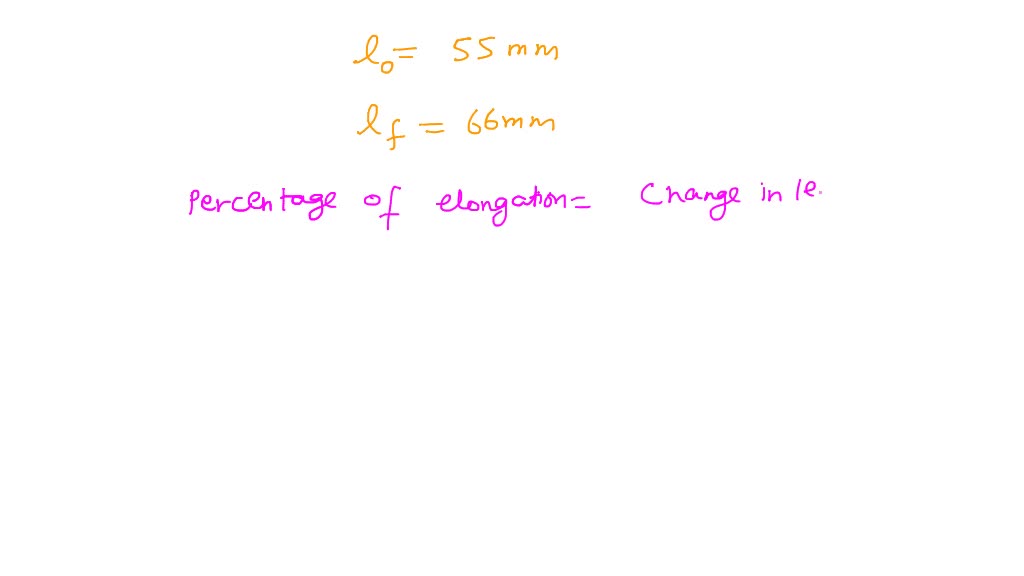 l₀ = 55 mm
l_f = 66mm
Percentage of elongation = Change in le